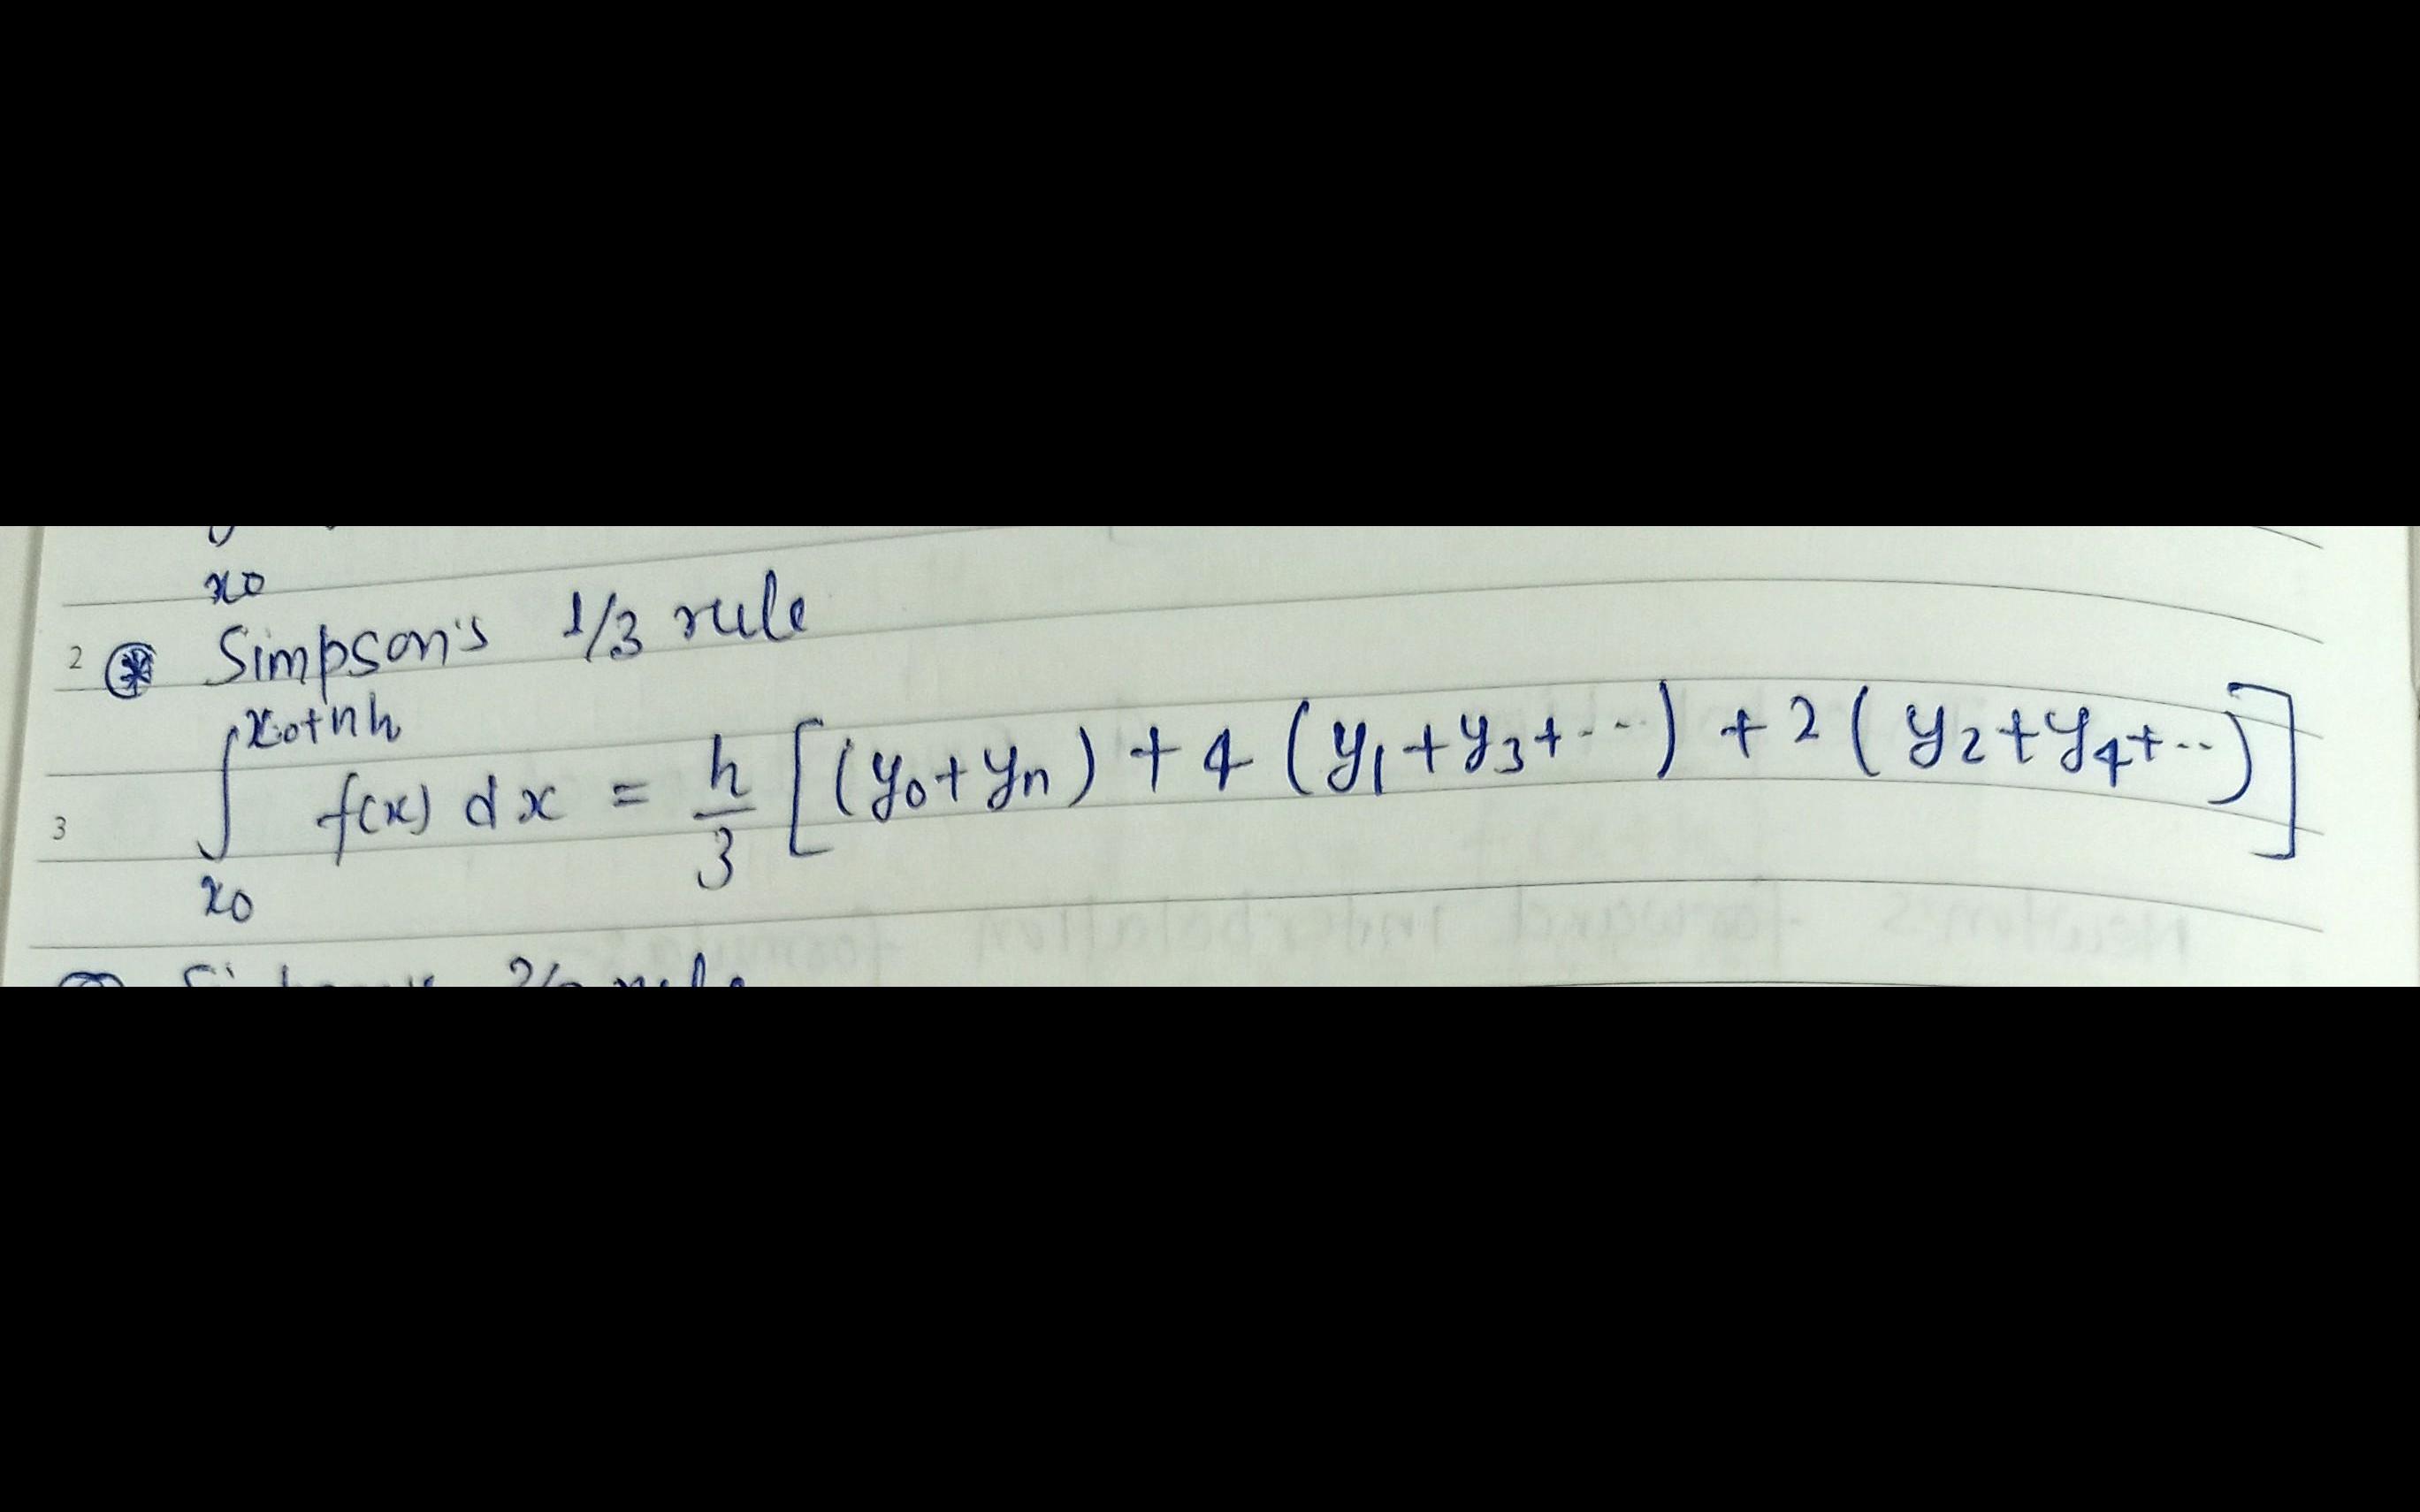 x0
2 ⊛ Simpson's 1/3 rule
3 ∫_{x0}^{x0+nh} f(x) dx = h/3 [(y0+yn) + 4 (y1+y3+---) + 2 (y2+y4+--)]